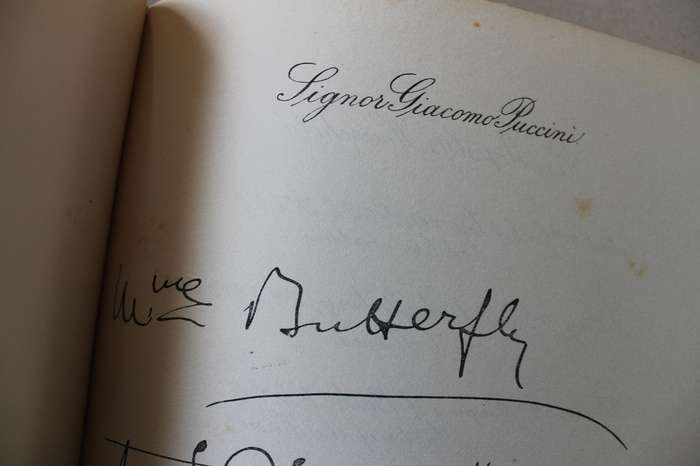 Signor Giacomo Puccini
Mme Butterfly